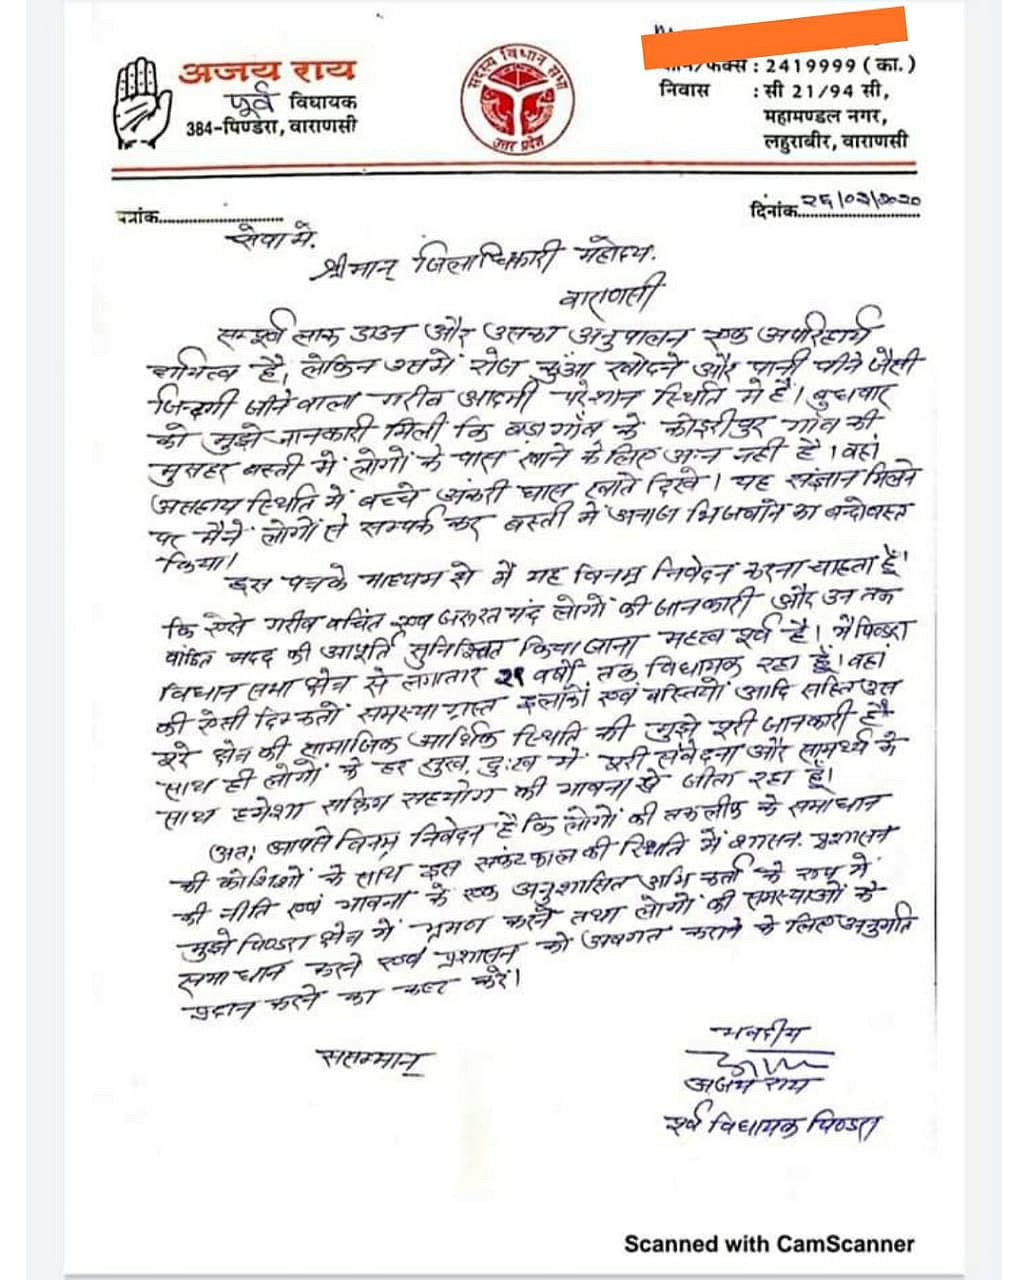 अजय राय
पूर्व विधायक
384-पिण्डरा, वाराणसी
सदस्य विधान सभा
उत्तर प्रदेश
फोन/फैक्स : 2419999 (का.)
निवास : सी 21/94 सी,
महामण्डल नगर,
लहुराबीर, वाराणसी
पत्रांक....................
दिनांक 26/03/2020
सेवा में,
श्रीमान् जिलाधिकारी महोदय.
वाराणसी
सम्पूर्ण लाक डाउन और उसका अनुपालन एक अपरिहार्य
दायित्व है, लेकिन उसमें रोज कुंआ खोदने और पानी पीने जैसी
जिन्दगी जीने वाला गरीब आदमी परेशान स्थिति में है। बुधवार
को मुझे जानकारी मिली कि बडागाँव के कोइरीपुर गाँव की
मुसहर बस्ती में लोगों के पास खाने के लिए अन्न नही है। वहां
असहाय स्थिति में बच्चे अंकरी घास खाते दिखे। यह संज्ञान मिलने
पर मैनें लोगों से सम्पर्क कर बस्ती में अनाज भिजवाने का बन्दोबस्त
किया।
इस पत्र के माध्यम से मैं यह विनम्र निवेदन करना चाहता हूँ।
कि ऐसे गरीब वंचित एवं जरूरतमंद लोगों की जानकारी और उन तक
वांछित मदद की आपूर्ति सुनिश्चित किया जाना महत्व पूर्ण है। मैं पिण्डरा
विधान सभा क्षेत्र से लगातार 21 वर्षों तक विधायक रहा हूँ। वहां
की ऐसी दिक्कतों समस्या ग्रस्त इलाकों एवं बस्तियों आदि सहित उस
पूरे क्षेत्र की सामाजिक आर्थिक स्थिति की मुझे पूरी जानकारी है
साथ ही लोगों के हर सुख, दुःख में पूरी संवेदना और सामर्थ्य के
साथ हमेशा सक्रिय सहयोग की भावना से जीता रहा हूँ।
अतः आपसे विनम्र निवेदन है कि लोगों की तकलीफ के समाधान
की कोशिशों के साथ इस संकट काल की स्थिति में शासन. प्रशासन
की नीति एवं भावना के एक अनुशासित अभिकर्ता के रूप में
मुझे पिण्डरा क्षेत्र में भ्रमण करने तथा लोगों की समस्याओं के
समाधान करने एवं प्रशासन को अवगत कराने के लिए अनुमति
प्रदान करने का कष्ट करें।
ससम्मान्
भवदीय
अजय राय
पूर्व विधायक पिण्डरा
Scanned with CamScanner